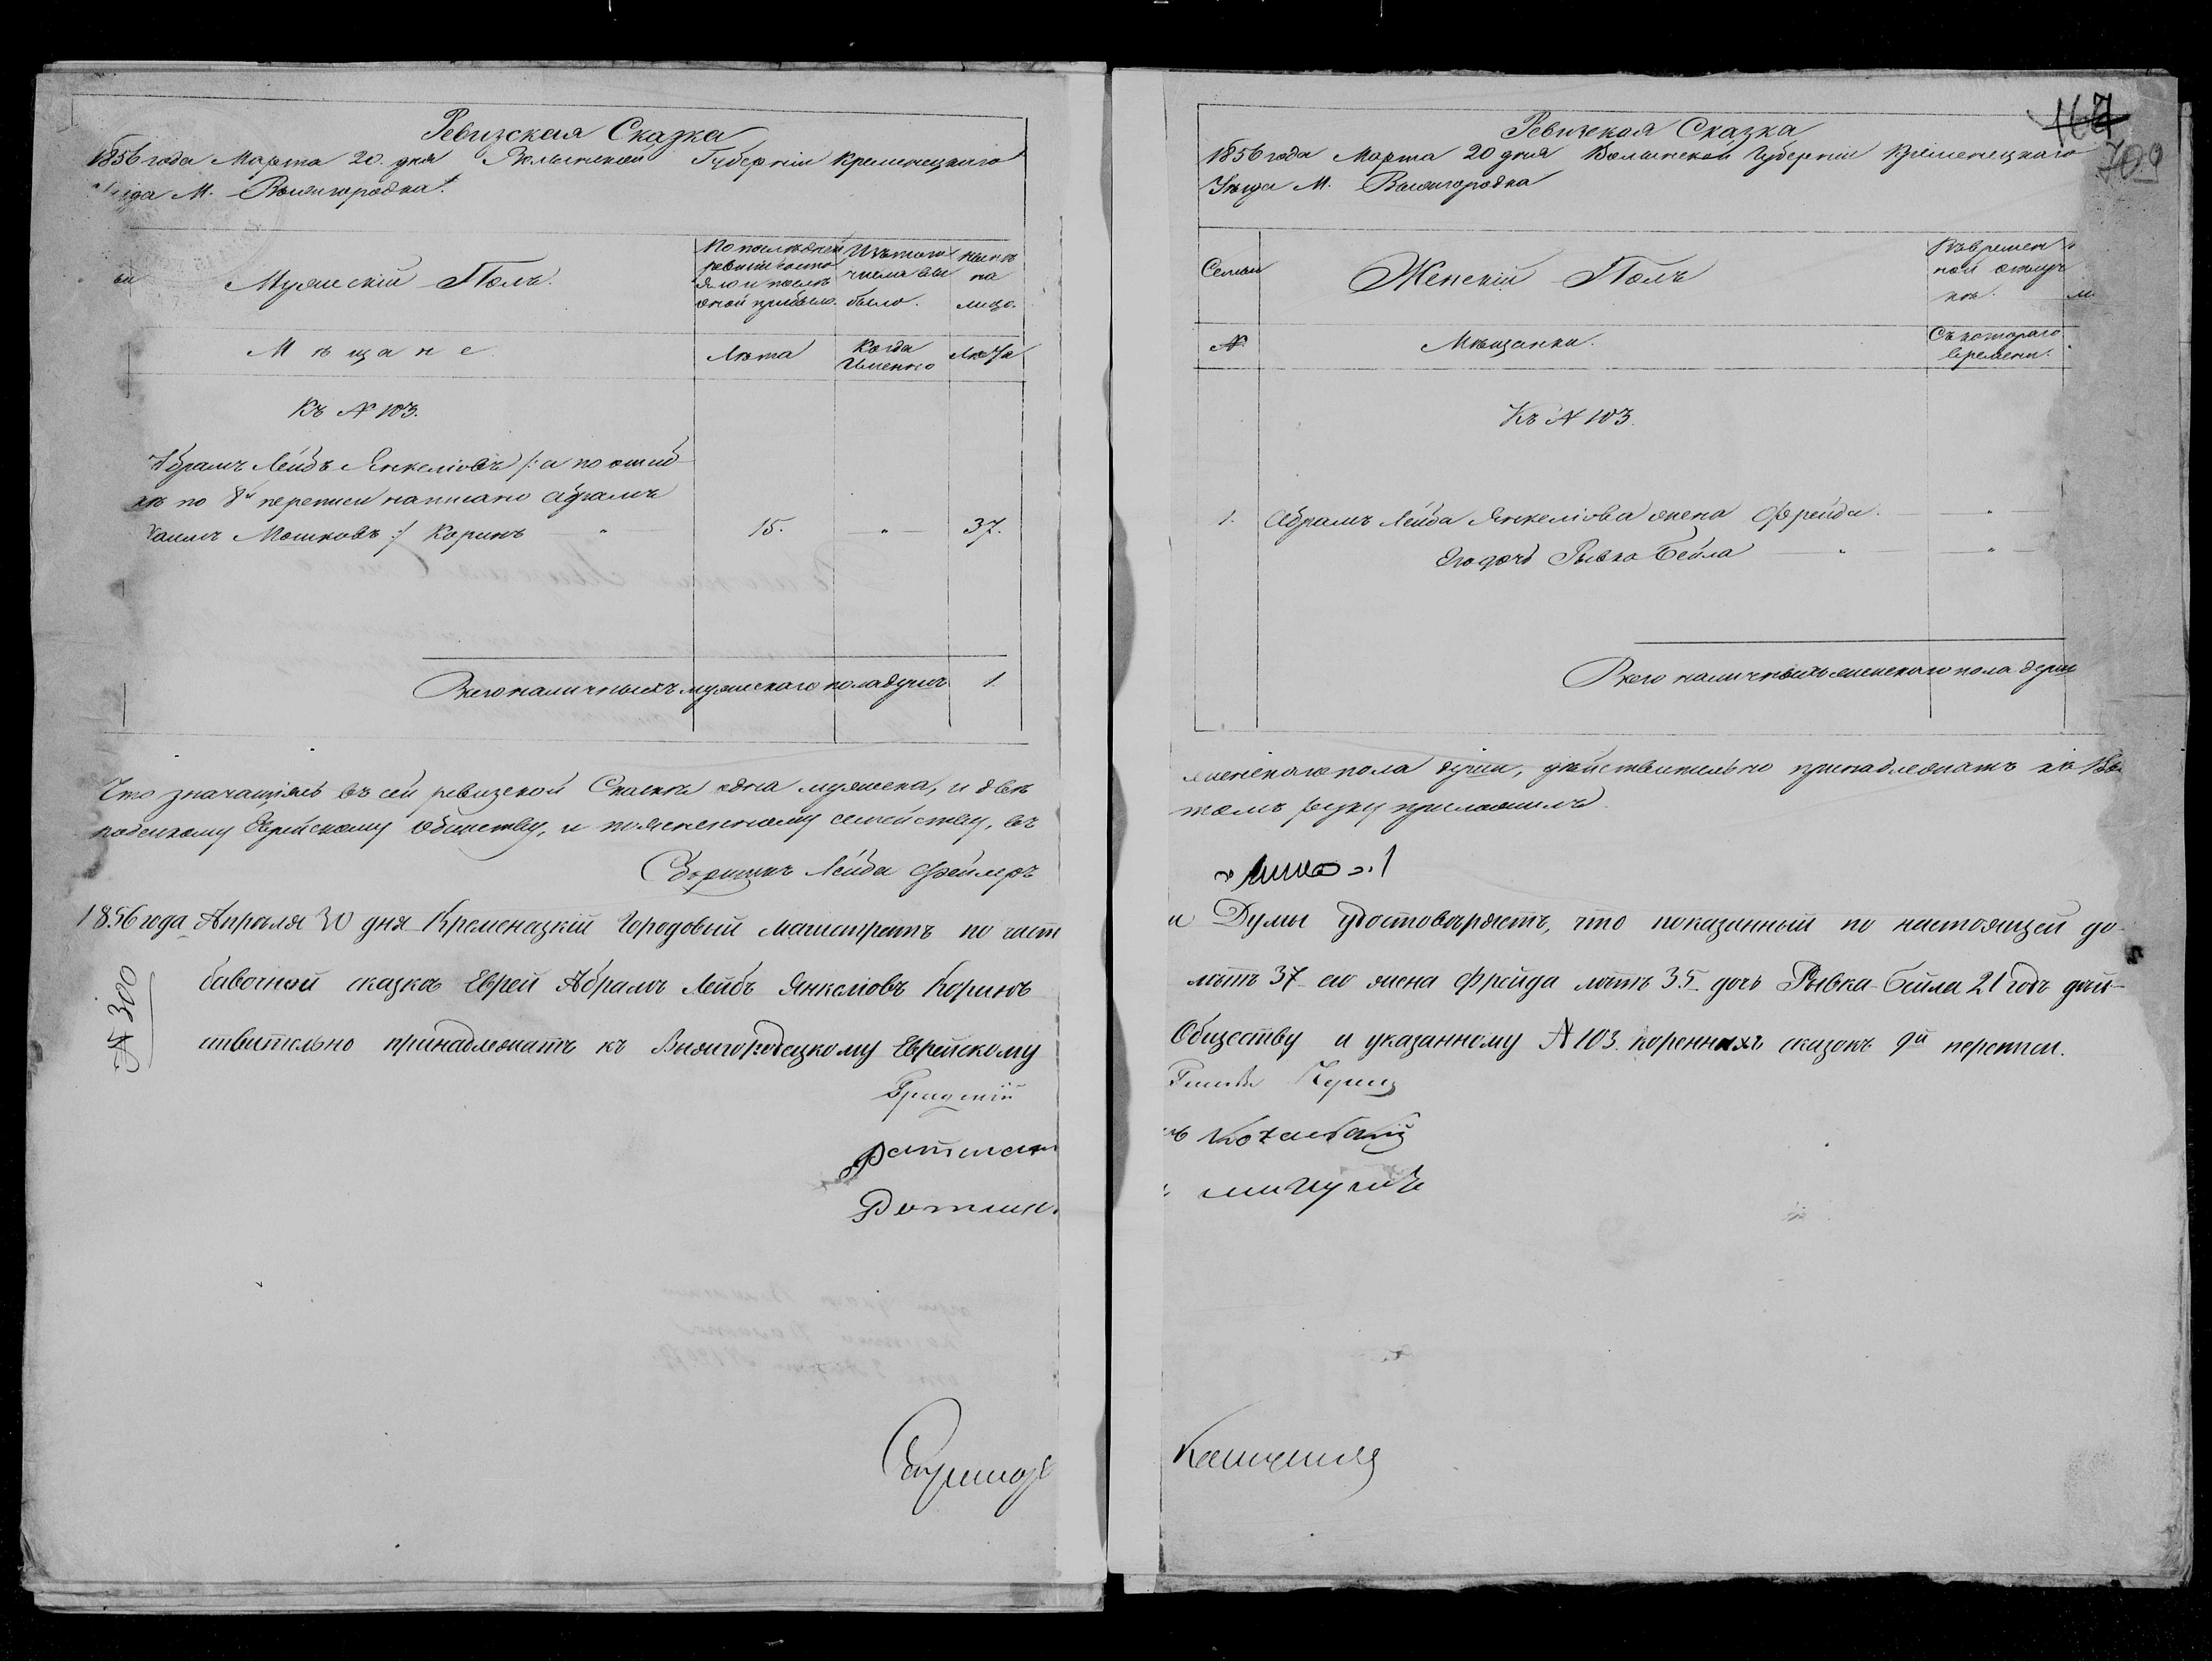 Ревизская Сказка
1856 года Марта 20. дня Волынской Губерніи Кременецкаго
М. Вышгородка.
Мужескій Полъ.
По послѣдней ревизіи состояло и послѣ оной прибыло.
Изъ того числа выбыло.
Нынѣ на лицо.
Мѣщане
Лѣта
Когда Именно
Лѣта
Къ № 103.
Абрамъ Лейбъ Янкеліовъ /: а по ошиб
кѣ по 8й переписи написано Абрамъ
Хаимъ Мошковъ :/ Коринъ " 15. " 37.
Всего наличныхъ мужескаго пола душъ 1.
Что значащіясь въ сей ревизской Сказкѣ одна мужеска, и двѣ
Еврейскому Обществу, и поясненному семейству, въ
Сборщикъ Лейба Феймеръ
1856 года Апрѣля 30 дня Кременецкій Городовый Магистратъ по части
бавочной сказкѣ Еврей Абрамъ Лейбъ Янкеліовъ Коринъ
ствительно принадлежатъ къ Вышгородецкому Еврейскому
№ 300
Ратман
Ратман
167
709
Ревизская Сказка
1856 года Марта 20 дня Волынской Губерніи Кременецкаго
Уѣзда М. Вышгородка
Семьи
Женскій Полъ
Въ временной отлучкѣ.
№
Мѣщанки.
Съ котораго времени.
Къ № 103.
1. Абрамъ Лейба Янкеліова жена Фрейда. "
Его дочь Рывка Бейла " "
Всего наличныхъ женскаго пола душъ
женскаго пола души, дѣйствительно принадлежатъ къ
томъ руку приложилъ
и Думы удостовѣряетъ, что показанный по настоящей до-
лѣтъ 37 его жена Фрейда лѣтъ 35 дочь Рывка-Бейла 21 годъ дѣй-
Обществу и указанному № 103. коренныхъ сказокъ 9й переписи.